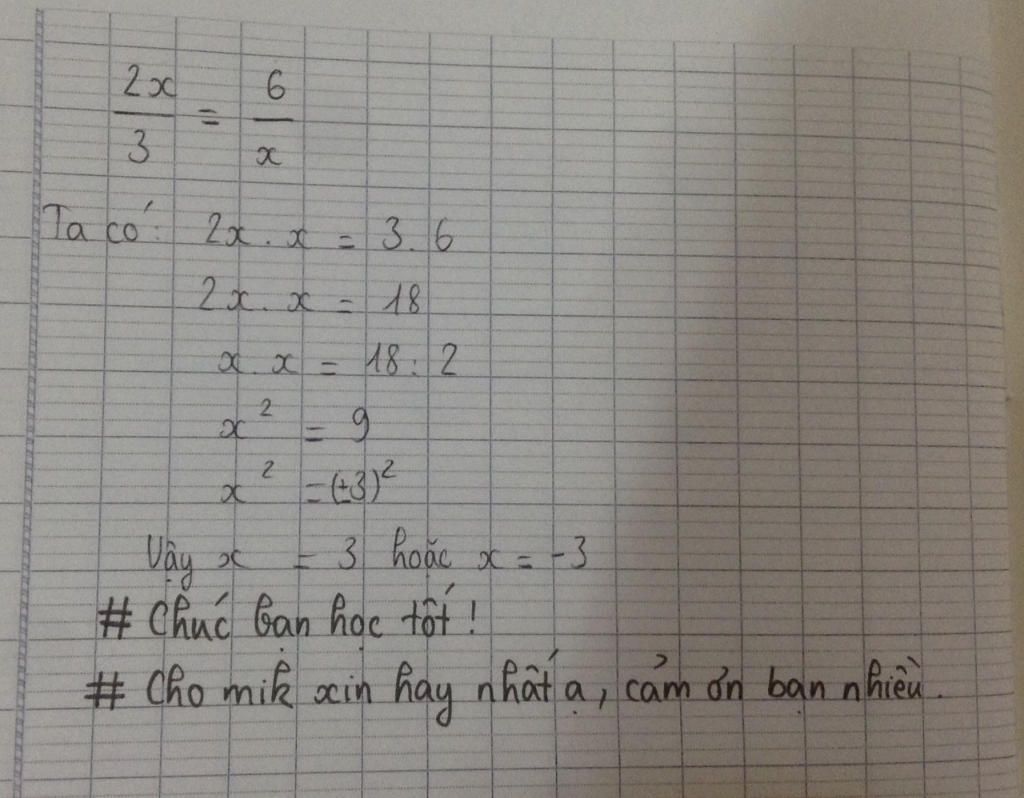 2x/3 = 6/x
Ta có: 2x . x = 3 . 6
2x . x = 18
x . x = 18 : 2
x² = 9
x² = (±3)²
Vậy x = 3 hoặc x = -3
# Chúc bạn học tốt!
# Cho mik xin hay nhất ạ, cảm ơn bạn nhiều.